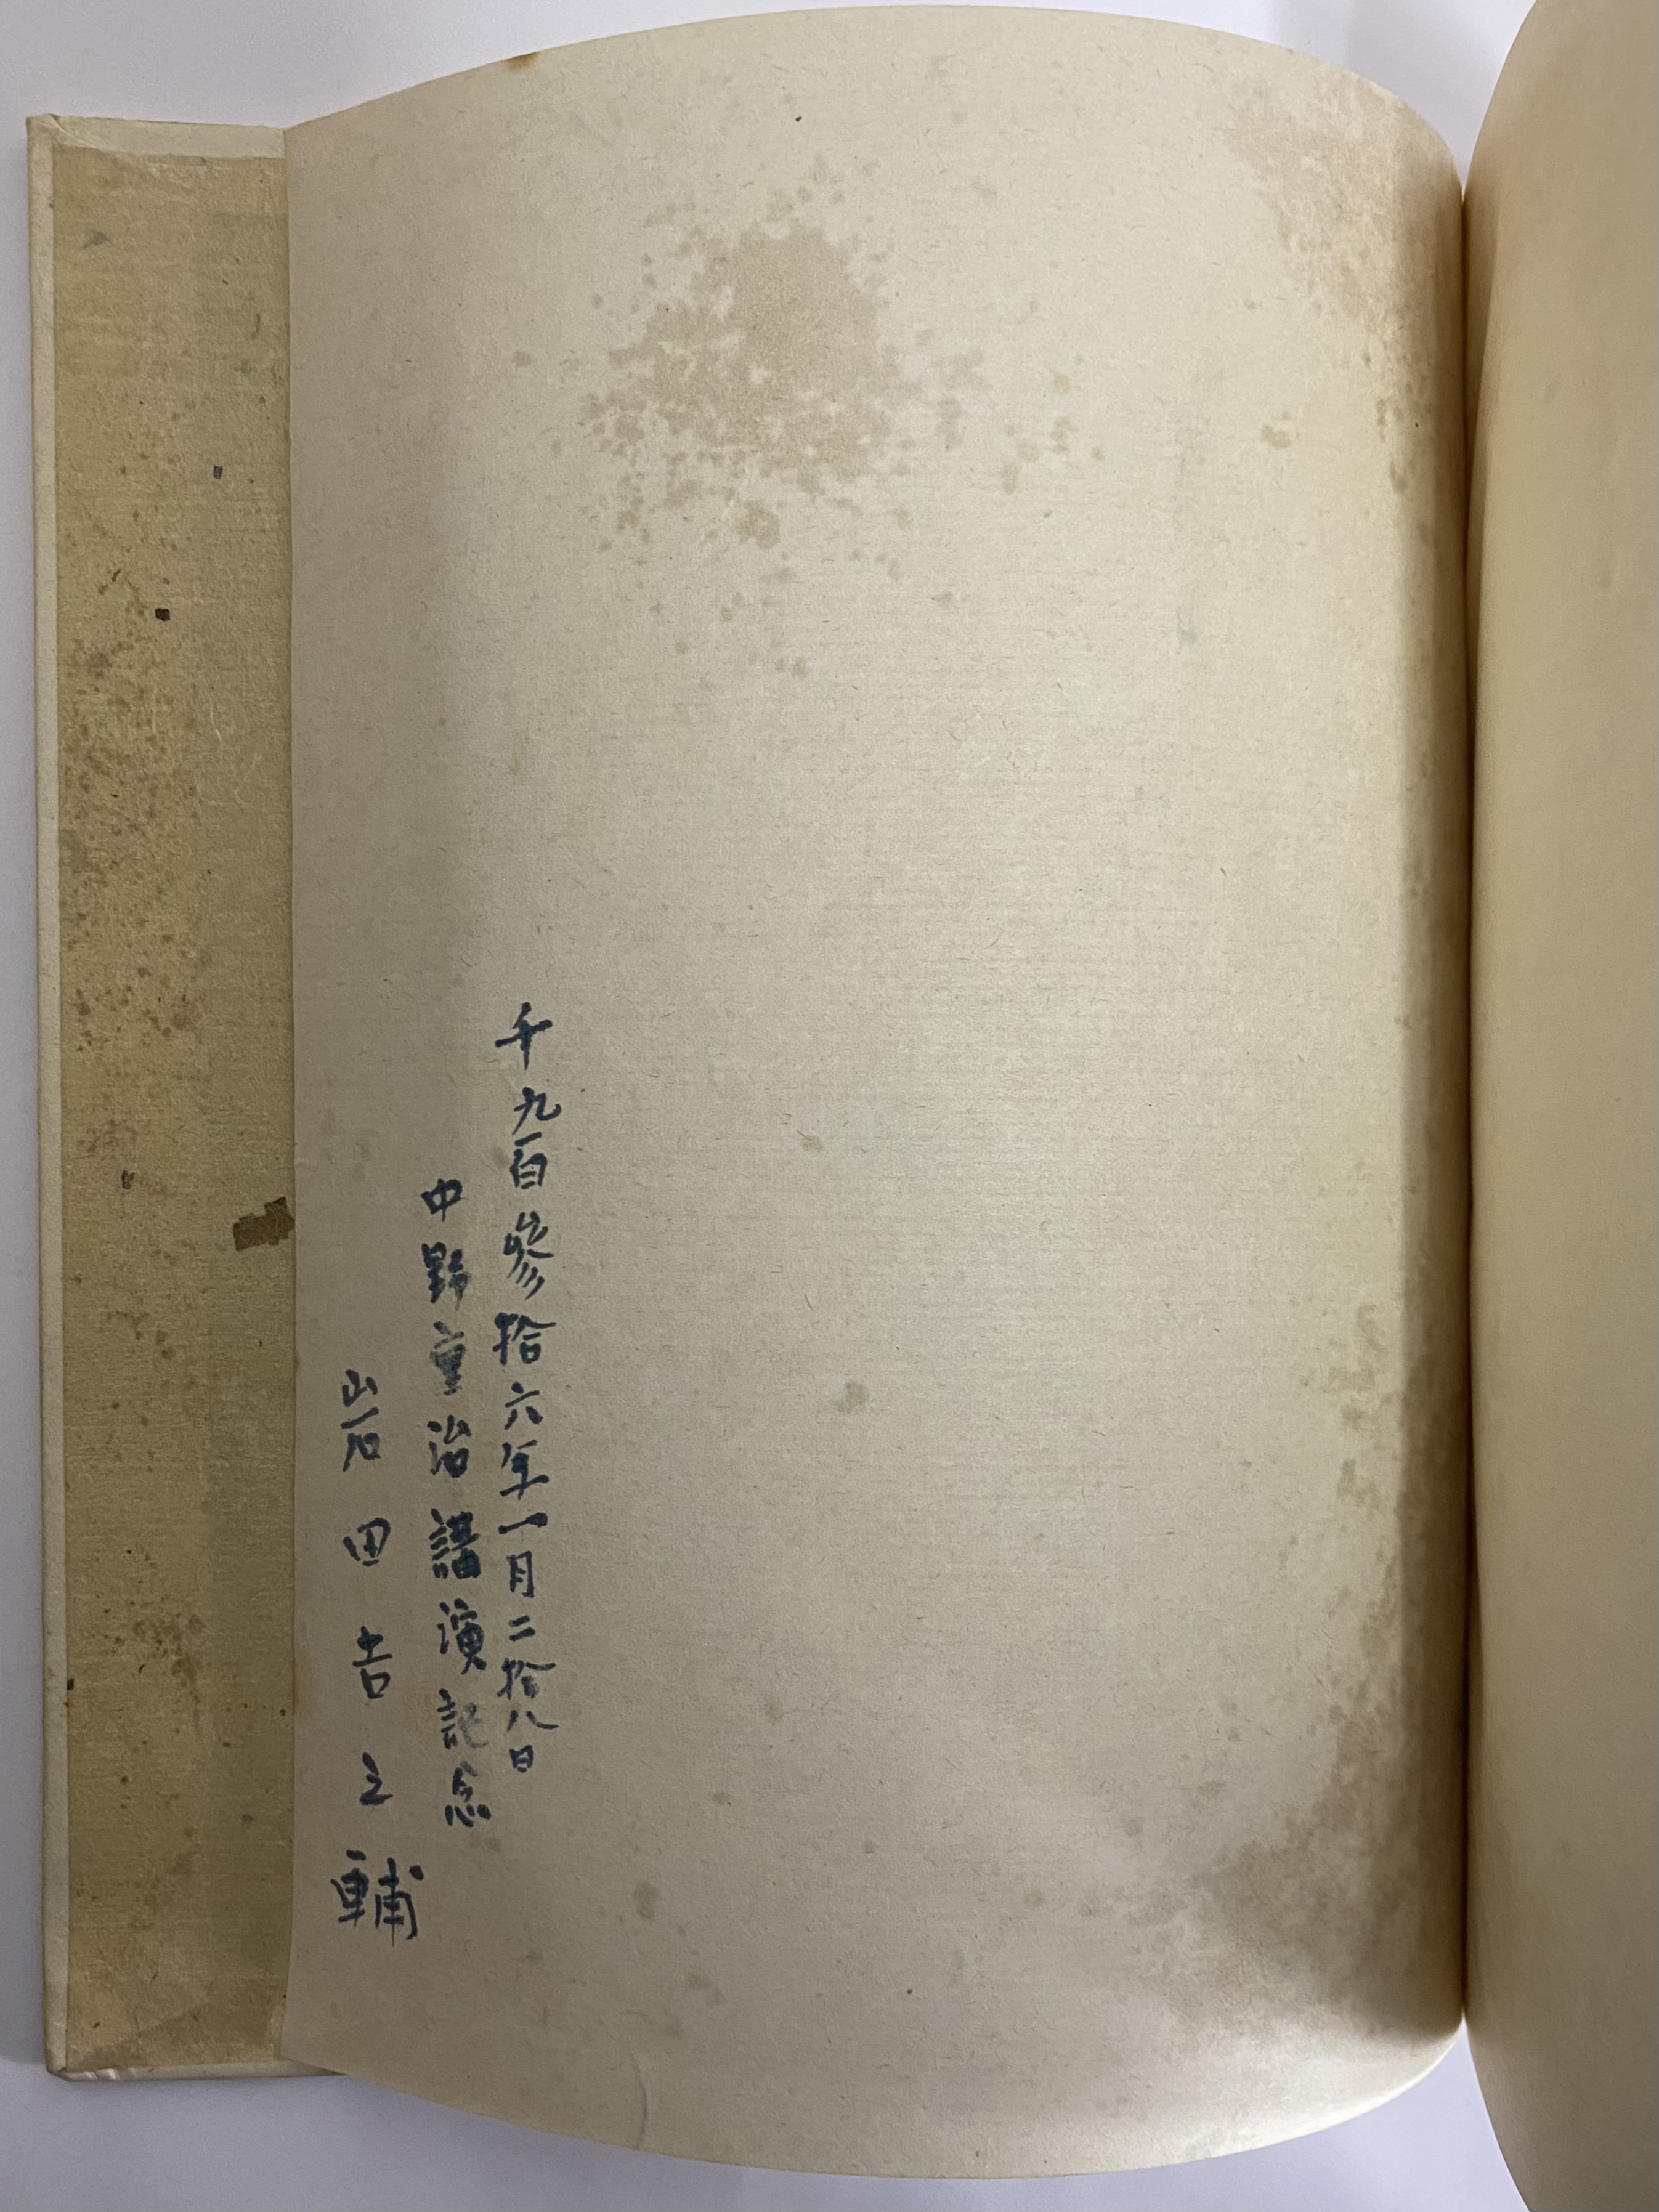 千九百參拾六年一月二拾八日
中野重治講演記念
岩田吉之輔